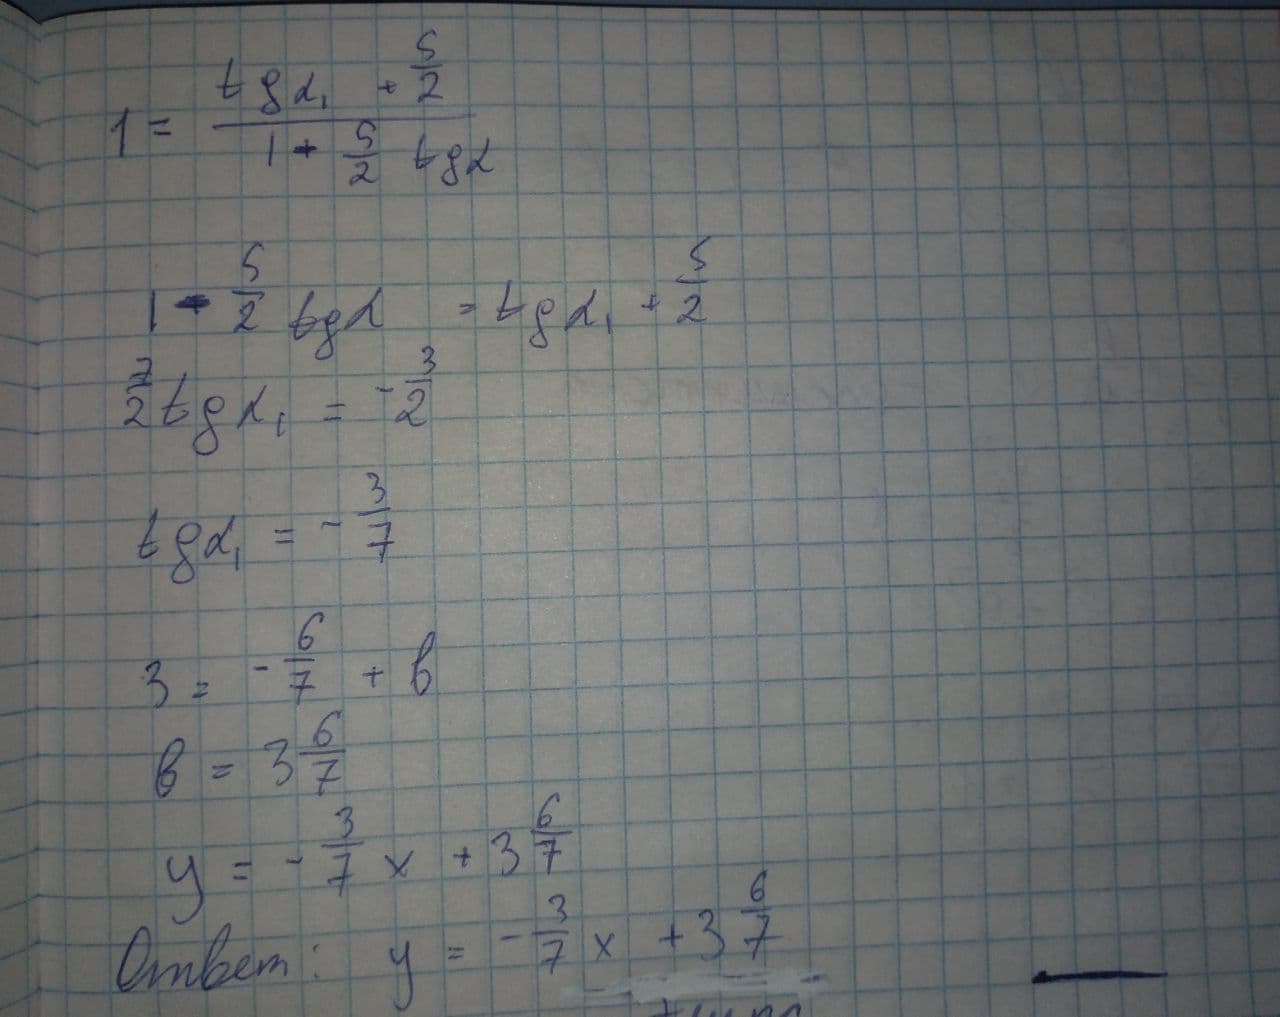 1 = (tg α₁ + 5/2) / (1 - 5/2 tg α)
1 - 5/2 tg α = tg α₁ + 5/2
7/2 tg α₁ = - 3/2
tg α₁ = - 3/7
3 = - 6/7 + в
в = 3 6/7
y = - 3/7 x + 3 6/7
Ответ: y = - 3/7 x + 3 6/7